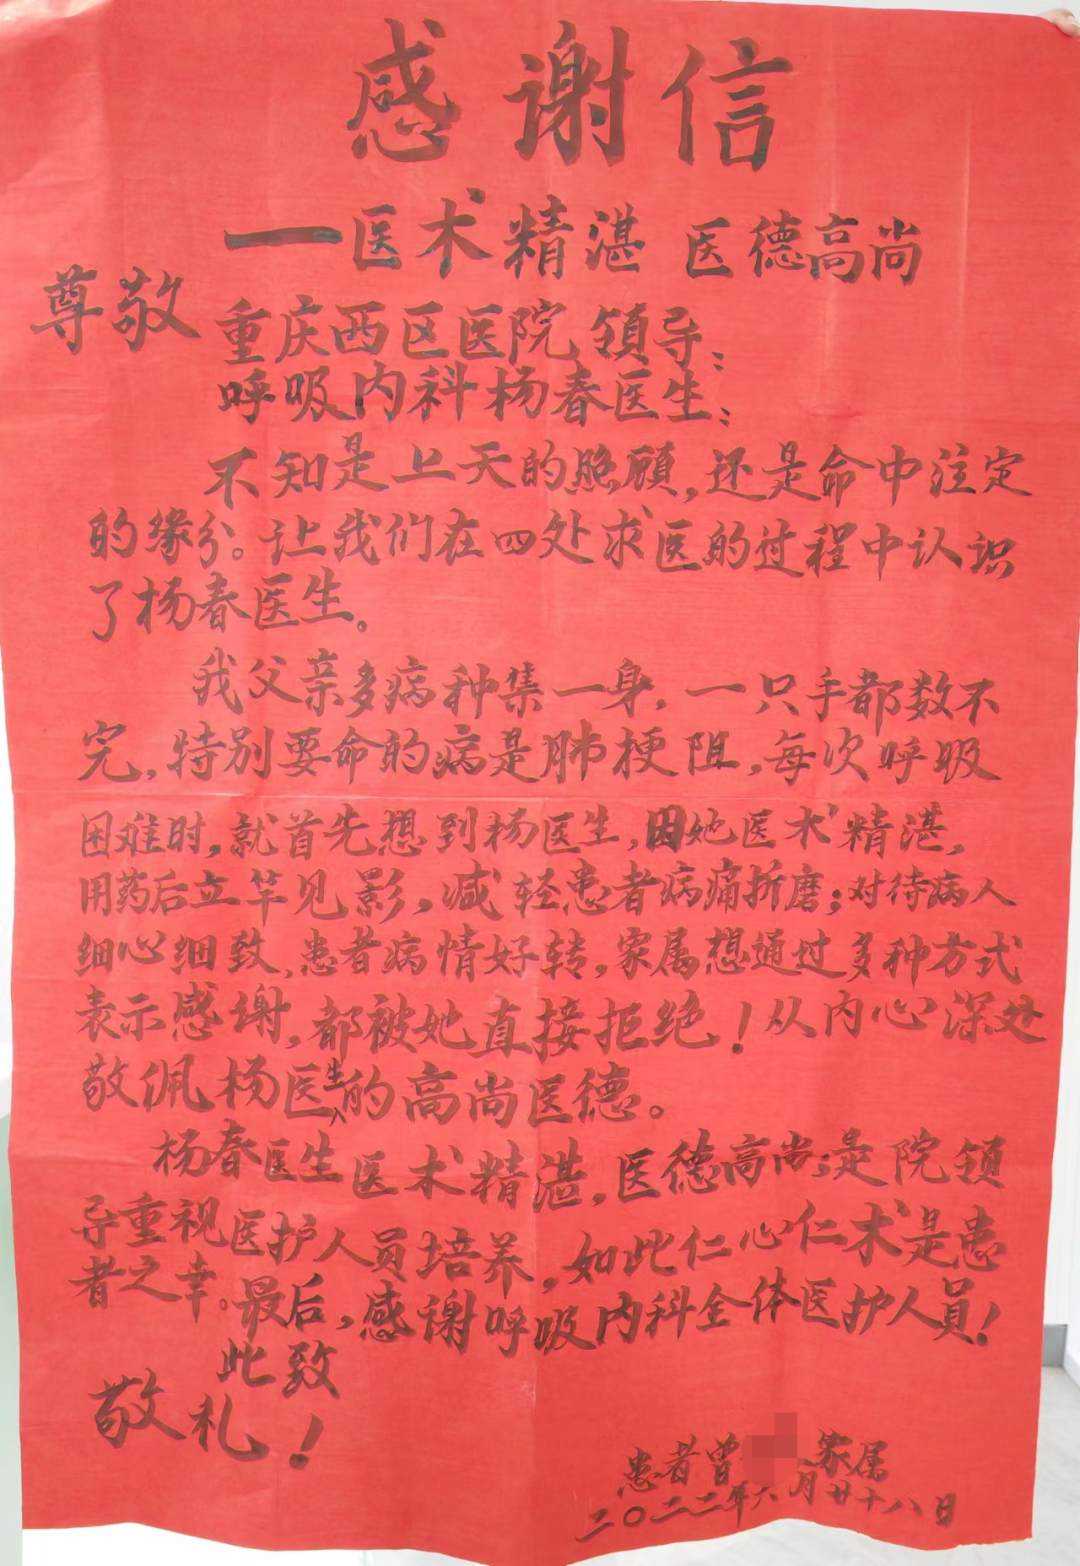 感谢信
一医术精湛 医德高尚
尊敬
重庆西区医院领导:
呼吸内科杨春医生:
不知是上天的照顾,还是命中注定
的缘分。让我们在四处求医的过程中认识
了杨春医生。
我父亲多病种集一身,一只手都数不
完,特别要命的病是肺梗阻,每次呼吸
困难时,就首先想到杨医生,因她医术精湛,
用药后立竿见影,减轻患者病痛折磨;对待病人
细心细致,患者病情好转,家属想通过多种方式
表示感谢,都被她直接拒绝!从内心深处
敬佩杨医生的高尚医德。
杨春医生医术精湛,医德高尚;是院领
导重视医护人员培养,如此仁心仁术是患
者之幸。最后,感谢呼吸内科全体医护人员!
此致
敬礼!
患者曾 家属
二〇二二年六月廿十八日